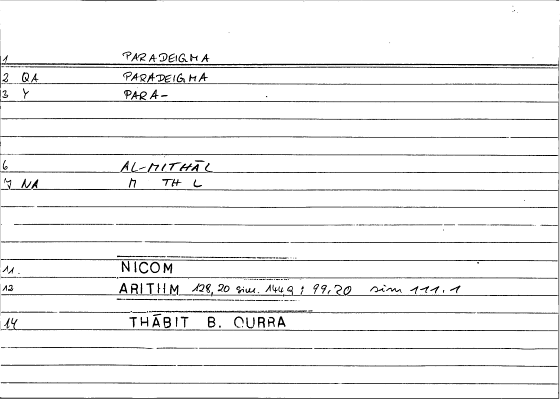 1 PARADEIGMA
2 QA PARADEIGMA
3 Y PARA-
6 AL-MITHĀL
7 NA M TH L
11. NICOM
13 ARITHM 128,20 sim. 144,9; 99,20 sim 111.1
14 THĀBIT B. QURRA